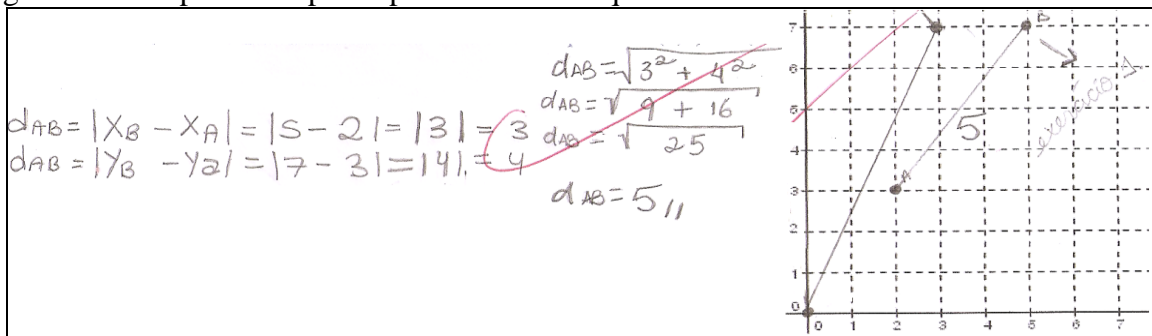 dAB = |XB - XA| = |5 - 2| = |3| = 3
dAB = |YB - Y2| = |7 - 3| = |4|. = 4
dAB = √3² + 4²
dAB = √9 + 16
dAB = √25
dAB = 5,,
7
6
5
4
3
2
1
0
0 1 2 3 4 5 6 7
A
B
5
exercício 1.